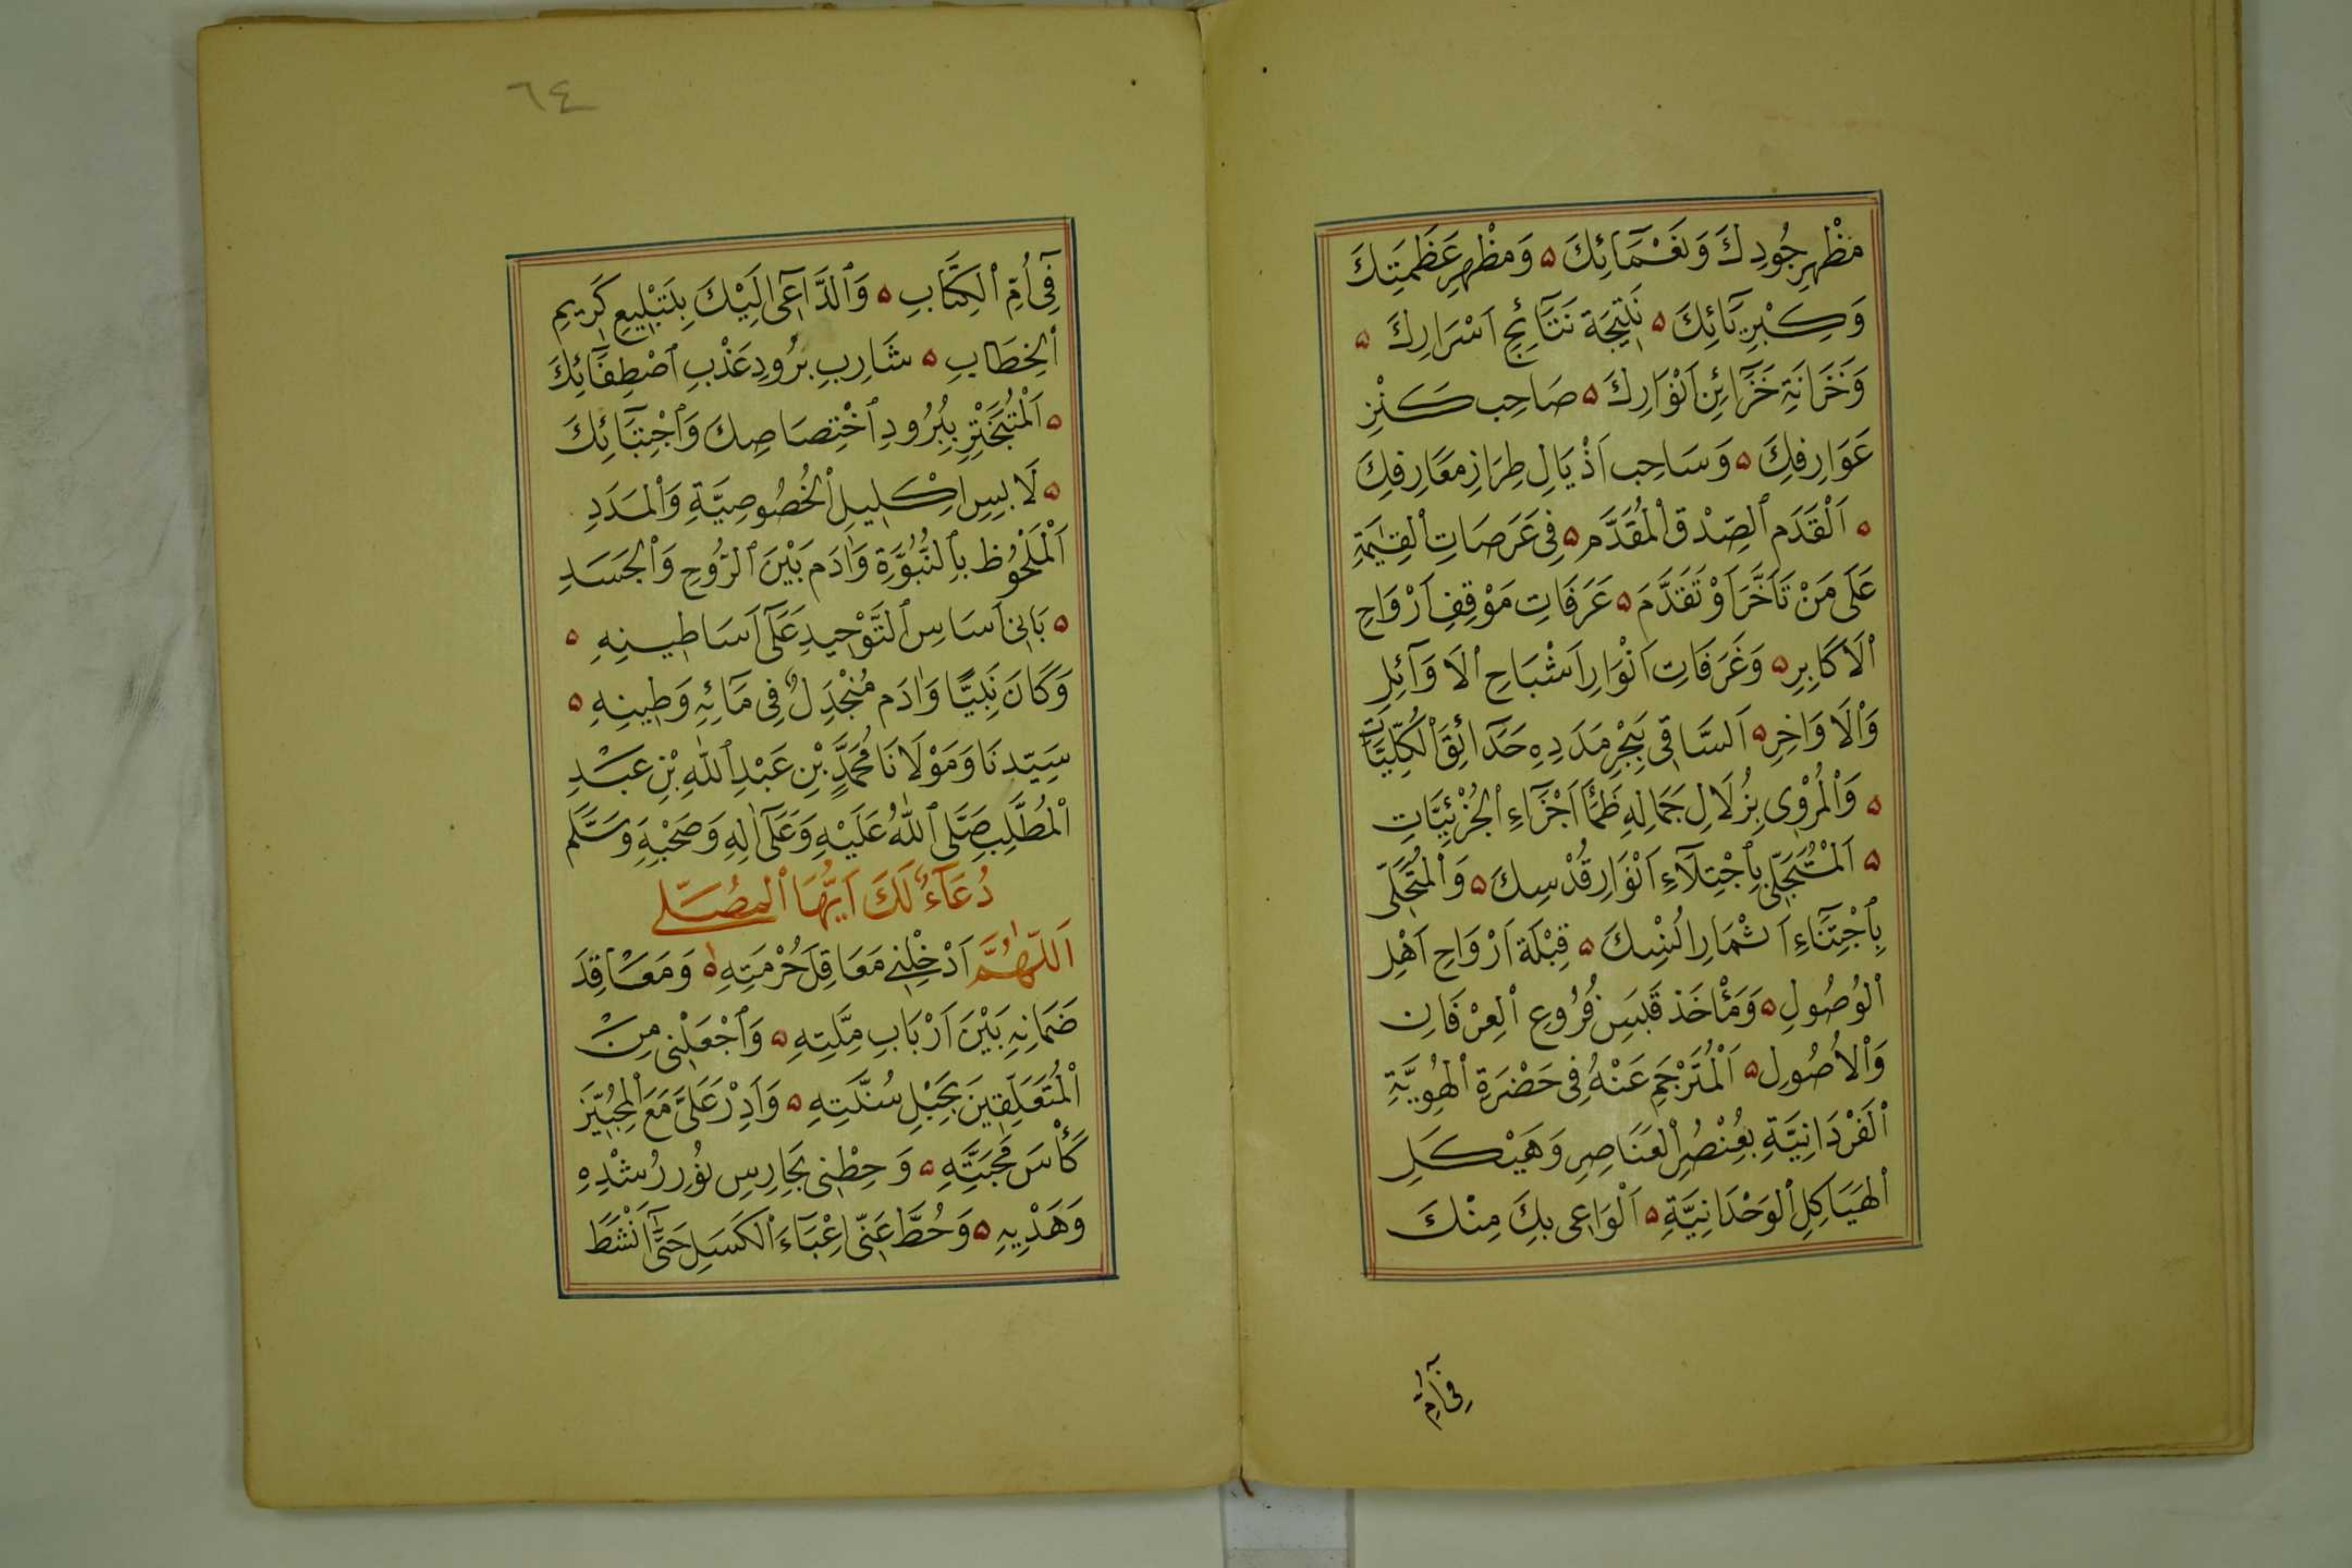 مَظْهَرِ جُودِكَ وَنَعْمَآئِكَ ه وَمَظْهَرِ عَظَمَتِكَ
وَكِبْرِيَآئِكَ ه نَتِيجَةِ نَتَآئِجِ اَسْرَارِكَ ه
وَخَزَانَةِ خَزَآئِنِ اَنْوَارِكَ ه صَاحِبِ كَنْزِ
عَوَارِفِكَ ه وَسَاحِبِ اَذْيَالِ طِرَازِ مَعَارِفِكَ
ه اَلْقَدَمِ ٱلصِّدْقِ ٱلْمُقَدَّمِ ه فِى عَرَصَاتِ ٱلْقِيٰمَةِ
عَلَى مَنْ تَاَخَّرَ اَوْ تَقَدَّمَ ه عَرَفَاتِ مَوْقِفِ اَرْوَاحِ
ٱلْاَكَابِرِ ه وَغَرَفَاتِ اَنْوَارِ اَشْبَاحِ ٱلْاَوَآئِلِ
وَٱلْاَوَاخِرِ ه اَلسَّاقِى بِبَحْرِ مَدَدِهِ حَدَآئِقَ ٱلْكُلِّيَّاتِ
ه وَٱلْمُرْوِى بِزُلَالِ جَمَالِهِ ظَمَأَ اَجْزَآءِ ٱلْجُزْئِيَّاتِ
ه اَلْمُتَجَلِّى بِٱجْتِلَآءِ اَنْوَارِ قُدْسِكَ ه وَٱلْمُتَحَلِّى
بِٱجْتِنَآءِ اَثْمَارِ اُنْسِكَ ه قِبْلَةِ اَرْوَاحِ اَهْلِ
ٱلْوُصُولِ ه وَمَأْخَذِ قَبَسِ فُرُوعِ ٱلْعِرْفَانِ
وَٱلْاُصُولِ ه اَلْمُتَرْجَمِ عَنْهُ فِى حَضْرَةِ ٱلْهُوِيَّةِ
ٱلْفَرْدَانِيَّةِ بِعُنْصُرِ ٱلْعَنَاصِرِ وَهَيْكَلِ
ٱلْهَيَاكِلِ ٱلْوَحْدَانِيَّةِ ه اَلْوَاعِى بِكَ مِنْكَ
فِى اُمِّ
٦٤
فِىٓ اُمِّ ٱلْكِتَابِ ه وَٱلدَّاعِىٓ اِلَيْكَ بِتَبْلِيغِ كَرِيمِ
ٱلْخِطَابِ ه شَارِبِ بَرُودِ عَذْبِ ٱصْطِفَآئِكَ
ه اَلْمُتَبَخْتِرِ بِبُرُودِ ٱخْتِصَاصِكَ وَٱجْتِبَآئِكَ
ه لَابِسِ اِكْلِيلِ ٱلْخُصُوصِيَّةِ وَٱلْمَدَدِ
ٱلْمَلْحُوظِ بِٱلنُّبُوَّةِ وَاٰدَمُ بَيْنَ ٱلرُّوحِ وَٱلْجَسَدِ
ه بَانِى اَسَاسِ ٱلتَّوْحِيدِ عَلَىٓ اَسَاطِينِهِ ه
وَكَانَ نَبِيًّا وَاٰدَمُ مُنْجَدِلٌ فِى مَآئِهِ وَطِينِهِ ه
سَيِّدِنَا وَمَوْلَانَا مُحَمَّدِ بْنِ عَبْدِ ٱللّٰهِ بْنِ عَبْدِ
ٱلْمُطَّلِبِ صَلَّى ٱللّٰهُ عَلَيْهِ وَعَلَىٓ اٰلِهِ وَصَحْبِهِ وَسَلَّمَ
دُعَآءٌ لَكَ اَيُّهَا ٱلْمُصَلِّى
اَللّٰهُمَّ اَدْخِلْنِى مَعَاقِلَ حُرْمَتِهِ ه وَمَعَاقِدَ
ضَمَانِهِ بَيْنَ اَرْبَابِ مِلَّتِهِ ه وَٱجْعَلْنِى مِنَ
ٱلْمُتَعَلِّقِينَ بِحَبْلِ سُنَّتِهِ ه وَاَدِرْ عَلَىَّ مَعَ ٱلْمُحِبِّينَ
كَأْسَ مَحَبَّتِهِ ه وَحِطْنِى بِحَارِسِ نُورِ رُشْدِهِ
وَهَدْيِهِ ه وَحُطَّ عَنِّى اَعْبَآءَ ٱلْكَسَلِ حَتَّىٓ اَنْشَطَ